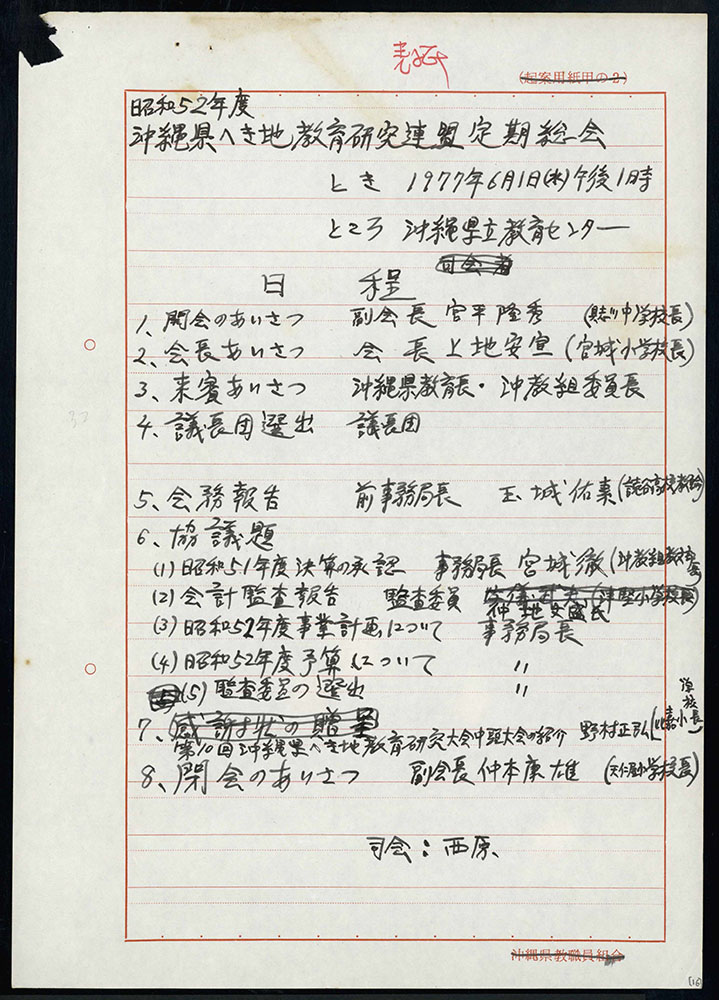 表紙
(起案用紙甲の2)
昭和52年度
沖縄県へき地教育研究連盟定期総会
とき 1977年6月1日(水)午後1時
ところ 沖縄県立教育センター
司会者
日 程
1、開会のあいさつ 副会長 宮平隆秀 (具志川中学校長)
2、会長あいさつ 会長 上地安宣 (宮城小学校長)
3、来賓あいさつ 沖縄県教育長・沖教組委員長
4、議長団選出 議長団
5、会務報告 前事務局長 玉城佑 (読谷高校教諭)
6、協議題
(1)昭和51年度決算の承認 事務局長 宮城徹 (沖教組教文部長)
(2)会計監査報告 監査委員 (津堅小学校長)
仲地
(3)昭和52年度事業計画について 事務局長
(4)昭和52年度予算について 〃
(5)監査委員の選出 〃
7、感謝状の贈呈
第10回沖縄県へき地教育研究大会中頭大会の紹介 野村正弘 (比嘉小学校長)
8、閉会のあいさつ 副会長 仲本康雄 (天仁屋小学校長)
司会:西原
沖縄県教職員組合
(16)